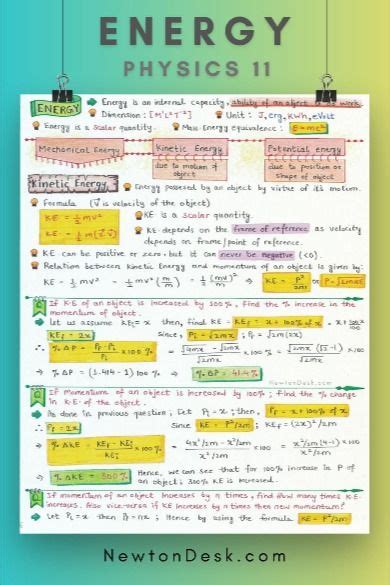 ENERGY
PHYSICS 11
ENERGY ➜ Energy is an internal capacity, ability of an object to do work.
Dimension: [M¹L²T⁻²] Unit: J, erg, KWh, eVolt
Energy is a Scalar quantity. Mass Energy equivalence: E=mc²
Mechanical Energy = Kinetic Energy + Potential energy
due to motion of object
due to position or shape of object
Kinetic Energy Energy possessed by an object by virtue of its motion.
Formula (V⃗ is velocity of the object)
KE = ½mv²
KE is a scalar quantity.
KE = ½m(V⃗.V⃗)
KE depends on the frame of reference as velocity depends on frame/point of reference.
KE can be positive or zero, but it can never be negative (<0).
Relation between kinetic Energy and momentum of an object is given by:
KE = ½mv² = ½mv²(m/m) = ½(mv)²/m ⇒ KE = P²/2m or P=√2mKE
If K.E of an object is increased by 100%, find the % increase in the momentum of object.
Let us assume KEi = x then, find KE = KEf = x + 100% of x = x + 100/100 x
KEf = 2x Since, Pi = √2mx ; Pf = √2m(2x)
∴ % ΔP = Pf-Pi/Pi x 100 % = √4mx - √2mx/√2mx x 100 % = √2mx (√2-1)/√2mx x 100%
⇒ % ΔP = (1.414-1) 100% ⇒ % ΔP = 41.4%
NewtonDesk.com
If Momentum of an object is increased by 100%; find the % change in K.E. of the object.
As done in previous question; Let Pi = x; then, Pf = x + 100% of x
∴ Pf = 2x Since KE = P²/2m; KEf = (2x)²/2m
∴ % ΔKE = KEf - KEi/KEi x 100% = 4x²/2m - x²/2m/x²/2m x 100 = x²/2m (4-1)/x²/2m x 100
⇒ % ΔKE = 300% Hence, we can see that for 100% increase in P of an object; 300% KE is increased.
If momentum of an object Increases by n times, find how many times K.E. increases. Also vice-versa if KE Increases by n times then new momentum?
Let Pi = x then Pf = nx ; Hence by using the formula KE = P²/2m
NewtonDesk.com